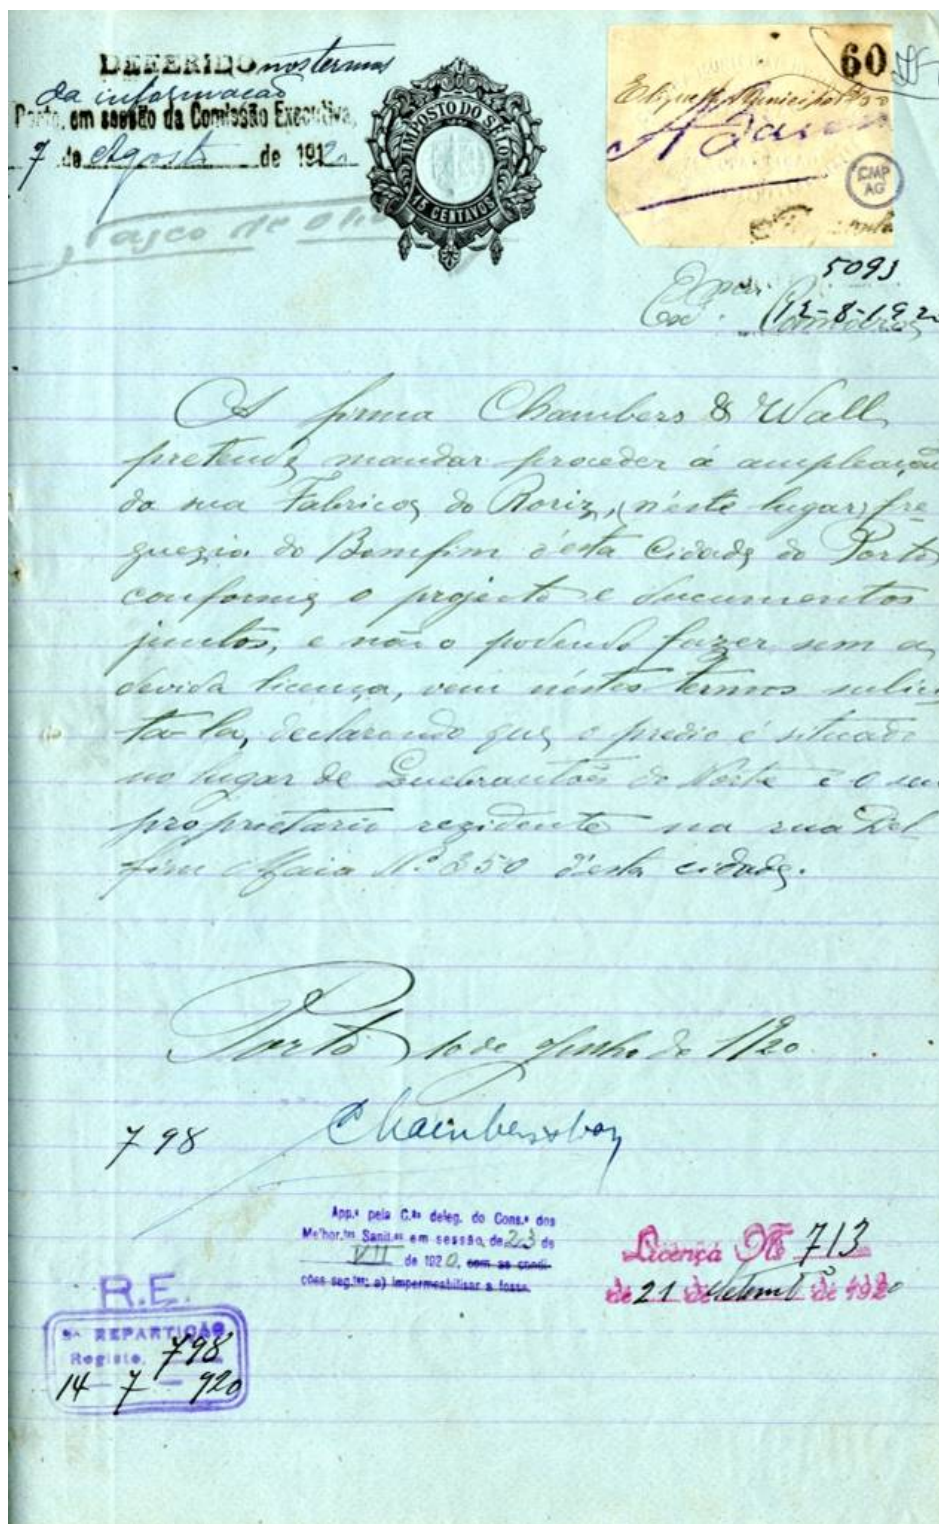 DEFERIDO nos termos
da informação
Porto, em sessão da Comissão Executiva,
7 de Agosto de 1920
Vasco de
IMPOSTO DO SELO
15 CENTAVOS
60
CMP
AG
5093
12-8-1920
A firma Chambers & Wall
pretende mandar proceder á ampleação
da sua Fabrica do Roriz, (néste lugar) fre
guezia do Bomfim d'esta Cidade do Porto
conforme o projecto e documentos
juntos, e não o podendo fazer sem a
devida licença, vem néstes termos solici
ta-la, declarando que o predio é situado
no lugar de Quebrantões do Norte e o seu
proprietario rezidente na rua Del
fim Maia Nº 350 d'esta cidade.
Porto 10 de Junho de 1920
798
App.ª pela C.ªº deleg. do Cons.º dos
Melhor.tos Sanit.os em sessão, de 23 de
VII de 1920, com as condi-
ções seg.tes: a) Impermeabilisar a fossa.
Licença Nº 713
de 21 de Setembro de 1920
R.E.
3ª REPARTIÇÃO
Registo, 798
14 - 7 - 920